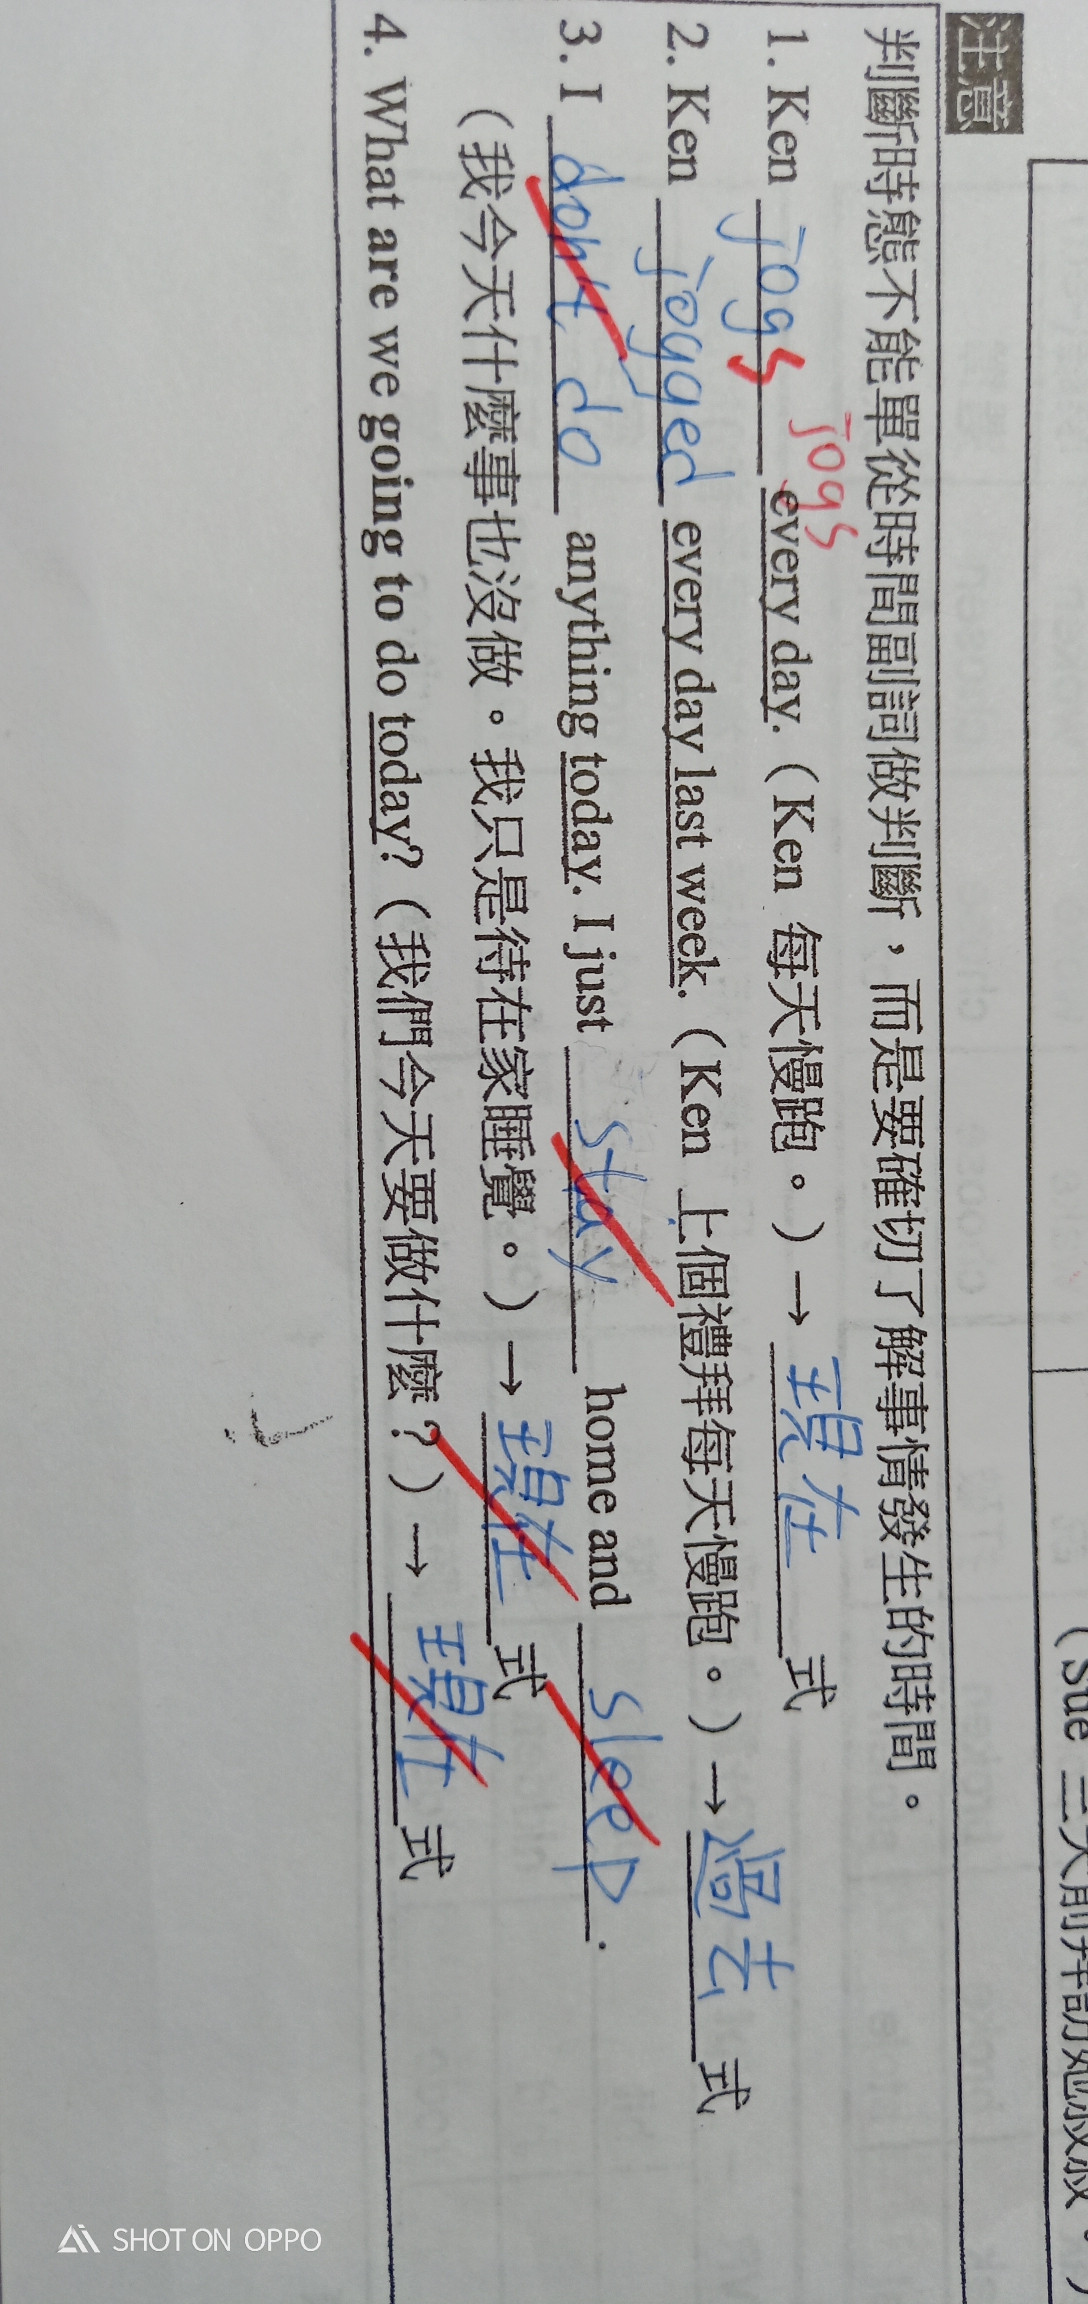 （Sue 三天前拜訪她叔叔。）
注意
判斷時態不能單從時間副詞做判斷，而是要確切了解事情發生的時間。
jogs
1. Ken jogs every day.（Ken 每天慢跑。）→ 現在 式
2. Ken jogged every day last week.（Ken 上個禮拜每天慢跑。）→ 過去 式
3. I don't do anything today. I just stay home and sleep.
（我今天什麼事也沒做。我只是待在家睡覺。）→ 現在 式
4. What are we going to do today?（我們今天要做什麼？）→ 現在 式
SHOT ON OPPO